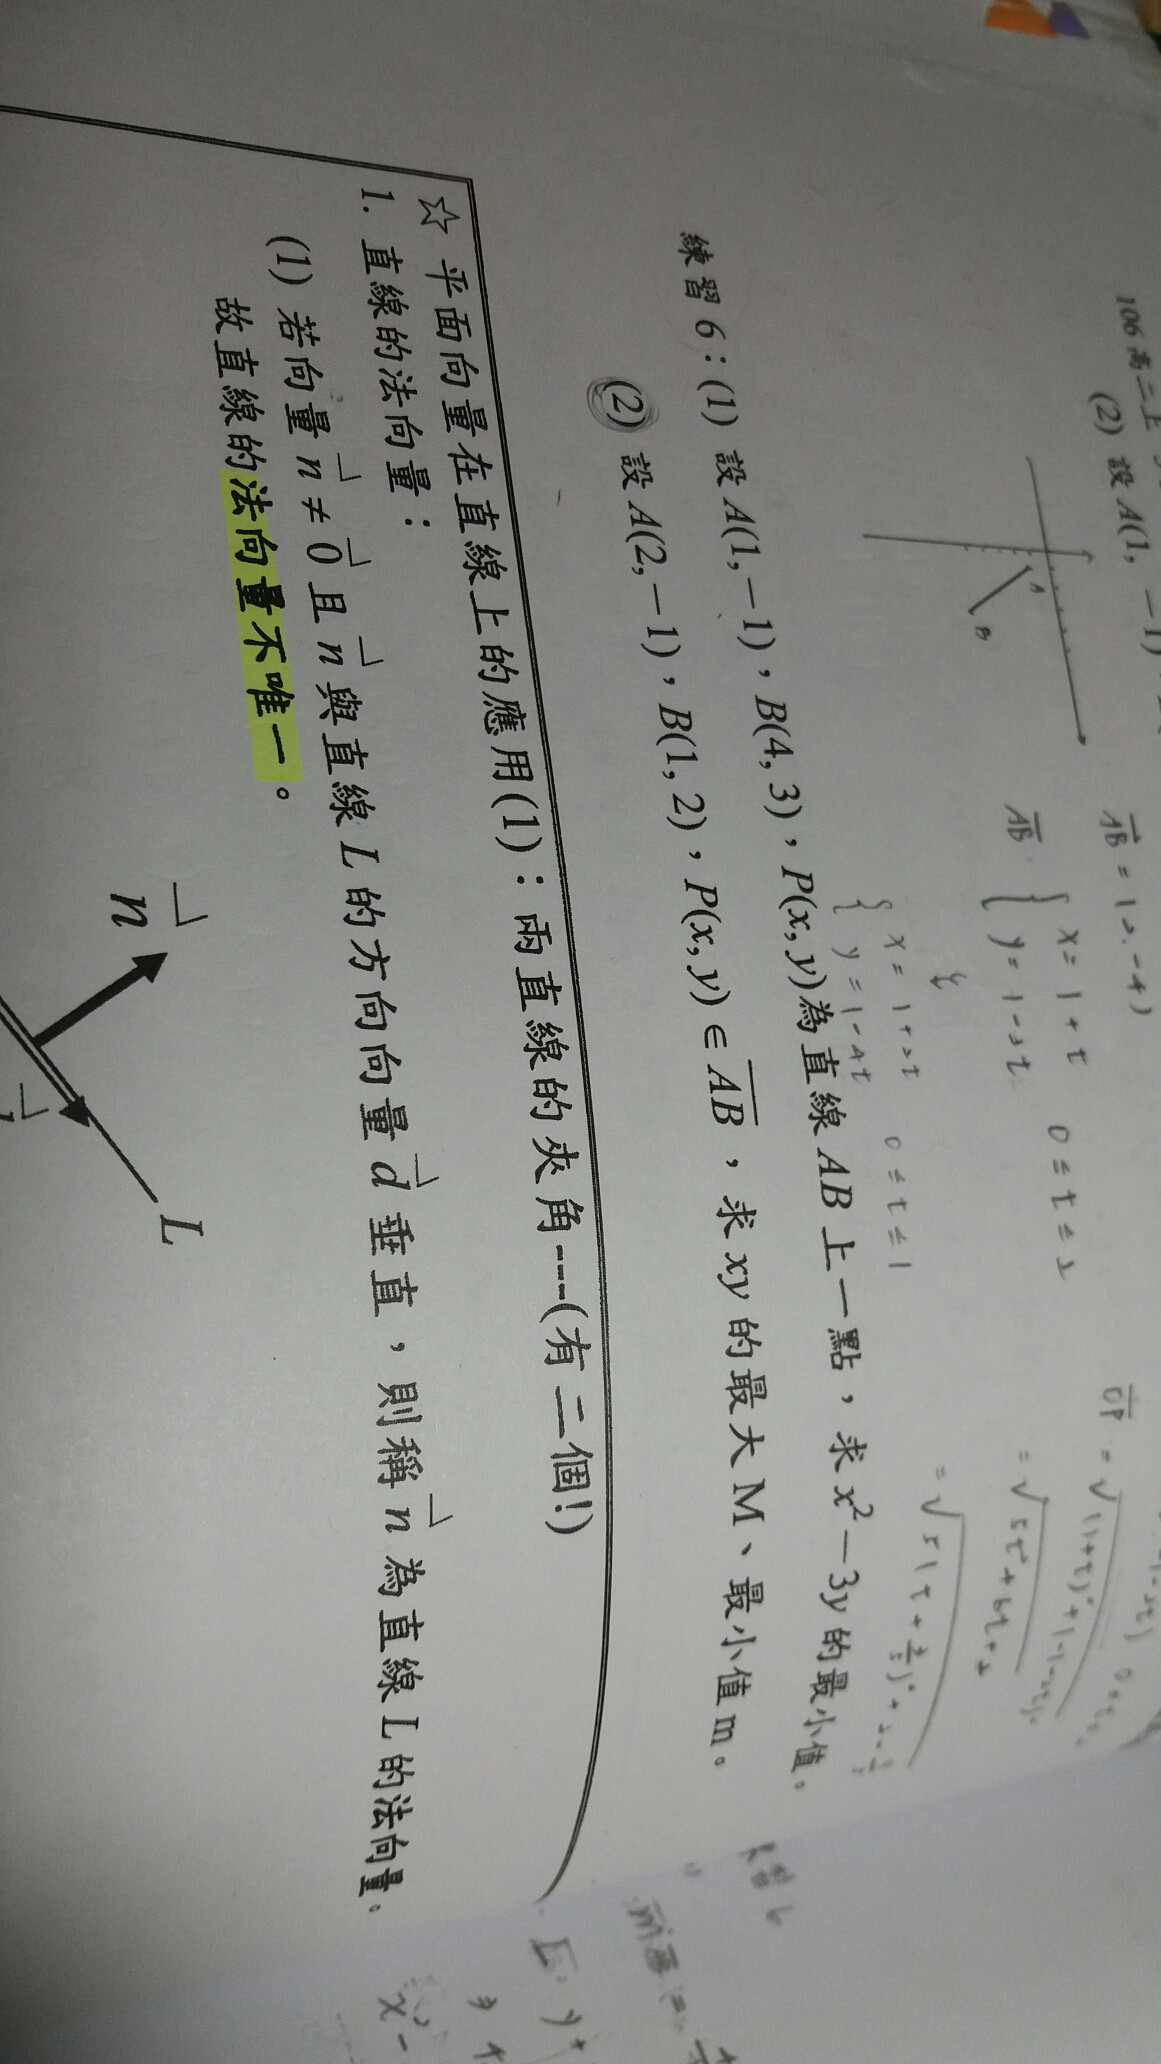 106 高二上
(2) 設 A(1, −1)
A
B
AB = (2, -4)
AB: { x = 1 + t
y = -1 - 2t
0 ≤ t ≤ 2
{ x = 1 + 2t
y = 1 - 4t
0 ≤ t ≤ 1
OP = √(1+t)²+(-1-2t)²
= √5t²+6t+2
練習 6：(1) 設 A(1, −1)，B(4, 3)，P(x, y)為直線 AB 上一點，求 x² − 3y 的最小值。
(2) 設 A(2, −1)，B(1, 2)，P(x, y) ∈ AB，求 xy 的最大 M、最小值 m。
☆ 平面向量在直線上的應用(1)：兩直線的夾角---(有二個!)
1. 直線的法向量：
(1) 若向量 n ≠ 0 且 n 與直線 L 的方向向量 d 垂直，則稱 n 為直線 L 的法向量。
故直線的法向量不唯一。
n
L